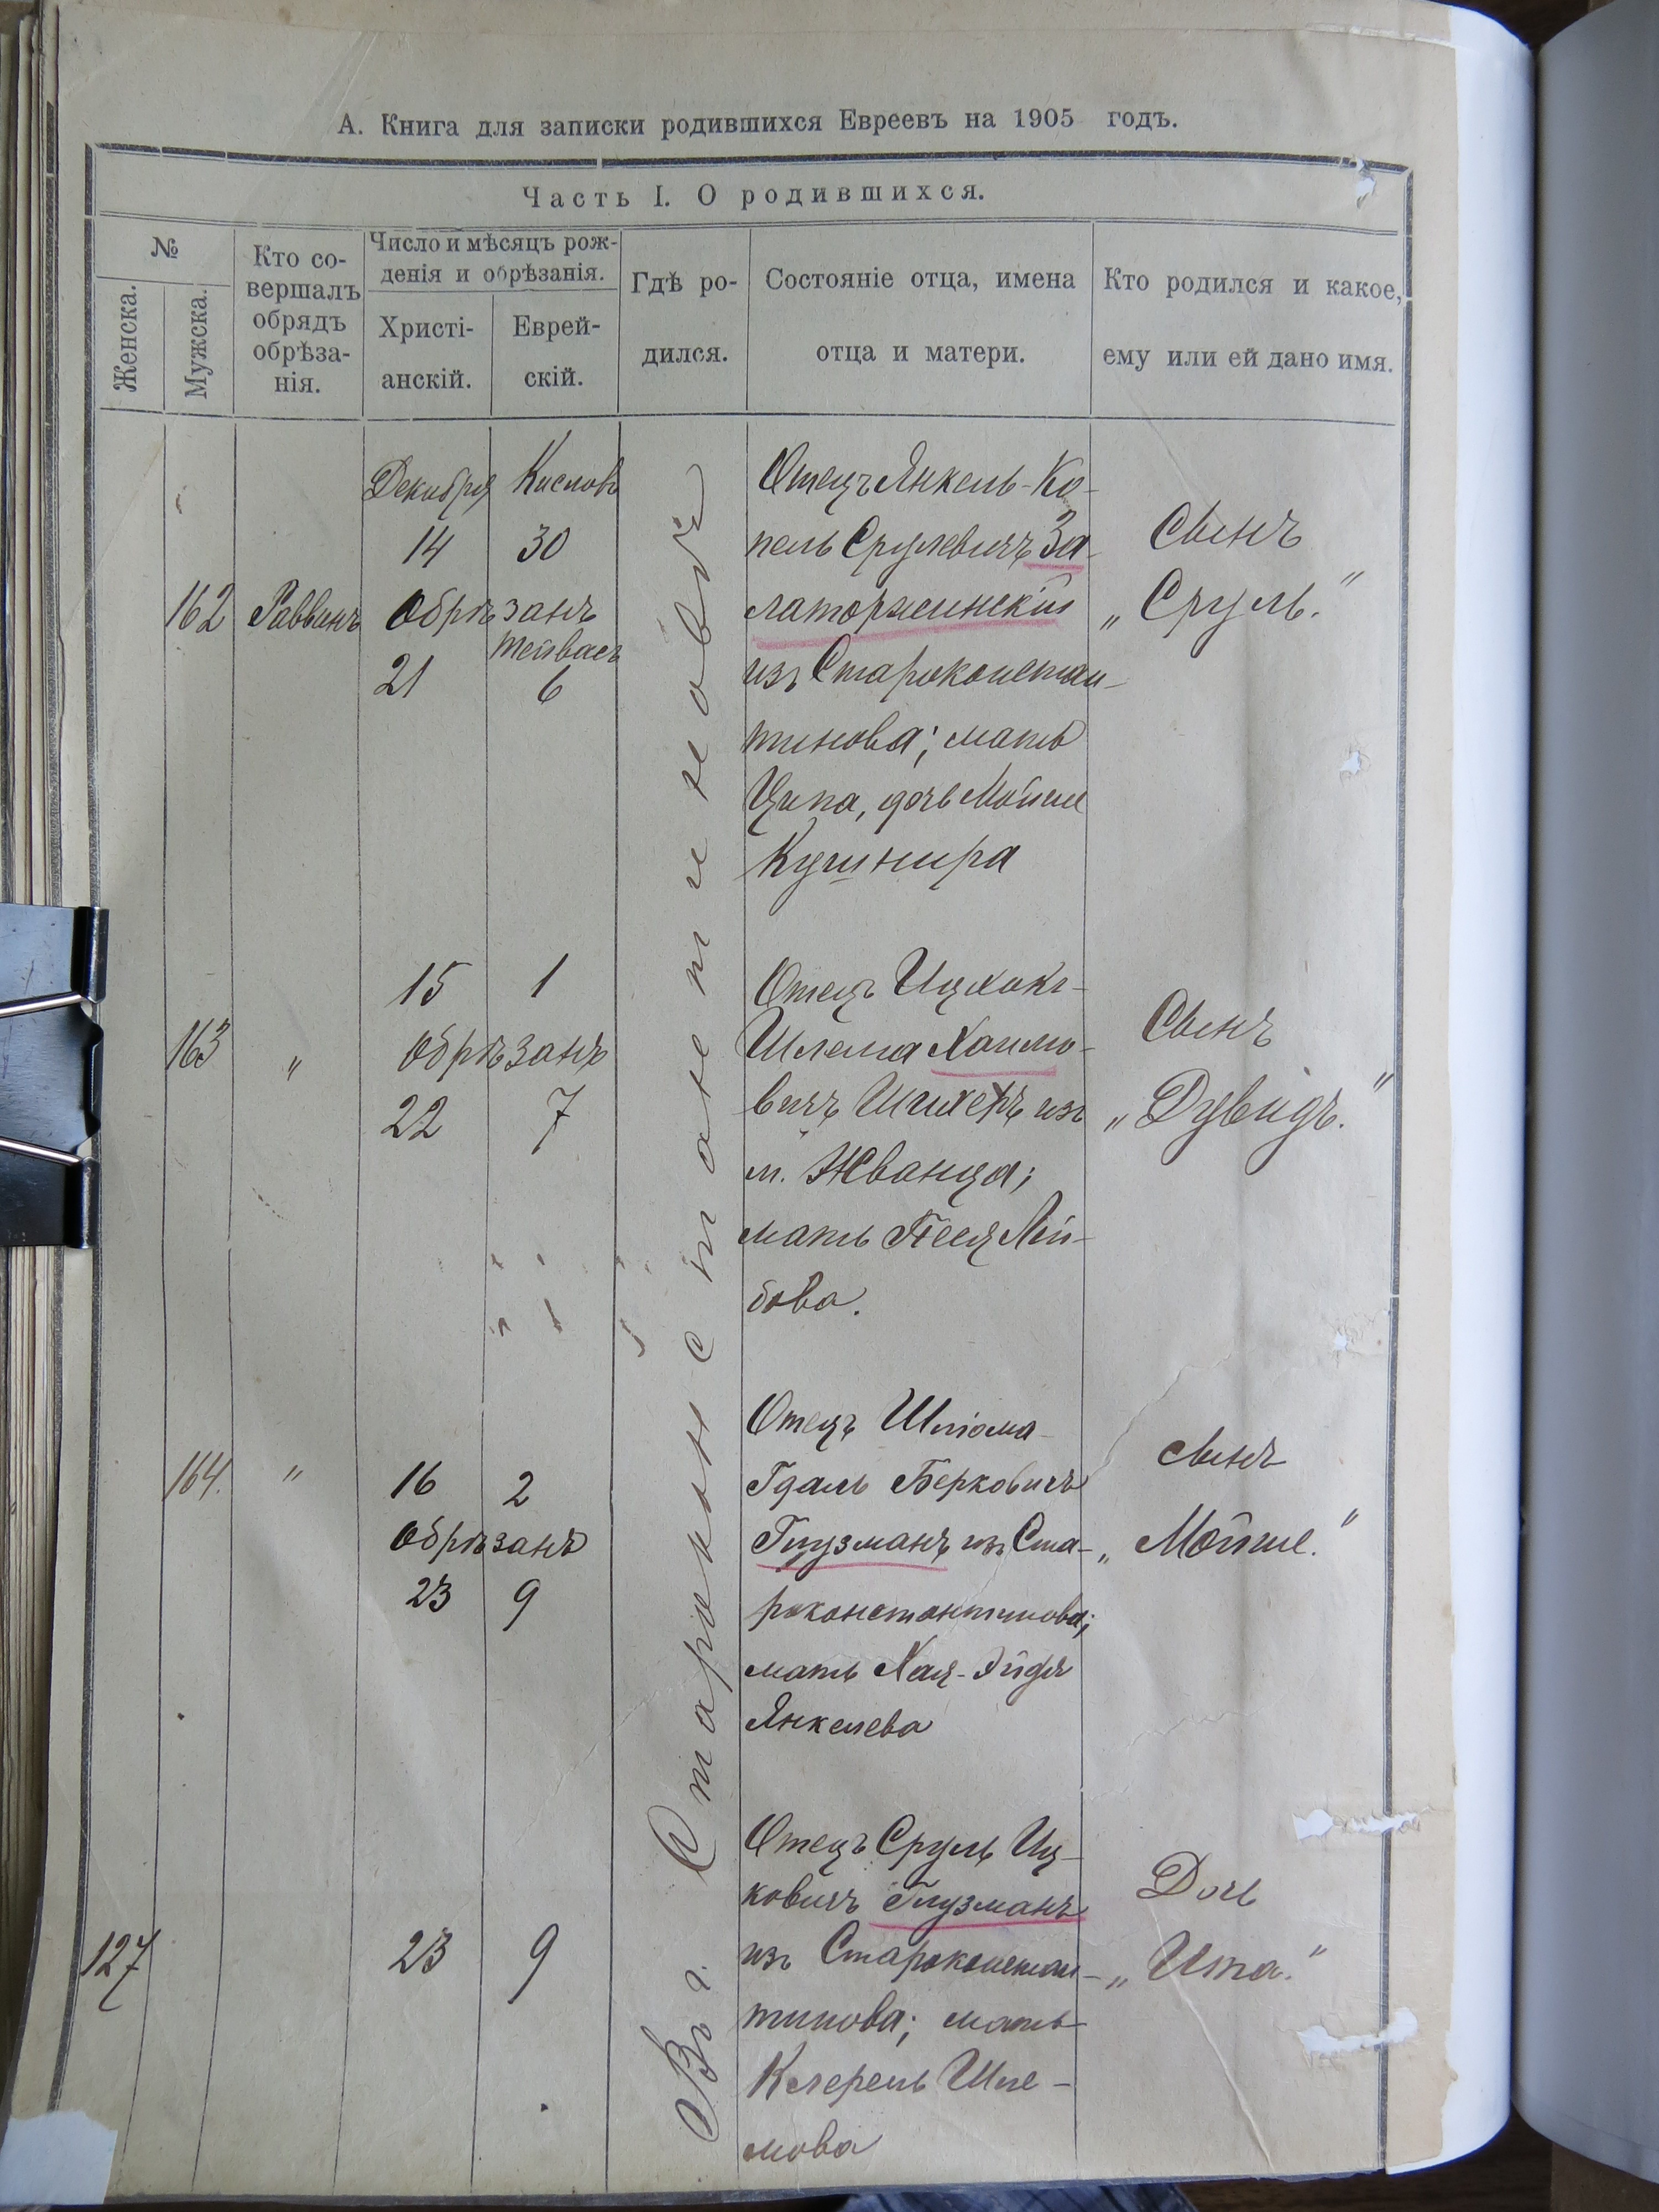 А. Книга для записки родившихся Евреевъ на 1905 годъ.
Часть I. О родившихся.
№
Женска.
Мужска.
Кто со-
вершалъ
обрядъ
обрѣза-
нія.
Число и мѣсяцъ рож-
денія и обрѣзанія.
Христі-
анскій.
Еврей-
скій.
Гдѣ ро-
дился.
Состояніе отца, имена
отца и матери.
Кто родился и какое,
ему или ей дано имя.
Въ г. Староконстантиновѣ
162
Раввинъ
Декабря Кислевъ
14 30
Обрѣзанъ
Тейвасъ
21 6
Отецъ Янкель-Ко-
пель Срулевичъ За-
латоржинскій
изъ Староконстан-
тинова; мать
Ципа, дочь Мойше
Кушнира
Сынъ
„Сруль."
163
"
15 1
Обрѣзанъ
22 7
Отецъ Ицхокъ-
Шлема Хаимо-
вичъ изъ
м. Жванца;
мать Песя Лей-
бова.
Сынъ
„Дувидъ."
164.
"
16 2
Обрѣзанъ
23 9
Отецъ Шлёма-
Гдаль Берковичъ
Глузманъ изъ Ста-
роконстантинова;
мать Хая-Эйдя
Янкелева
Сынъ
„Мойше."
127
23 9
Отецъ Сруль Иц-
ковичъ Глузманъ
изъ Староконстан-
тинова; мать
Шле-
мова
Дочь
„Ита."